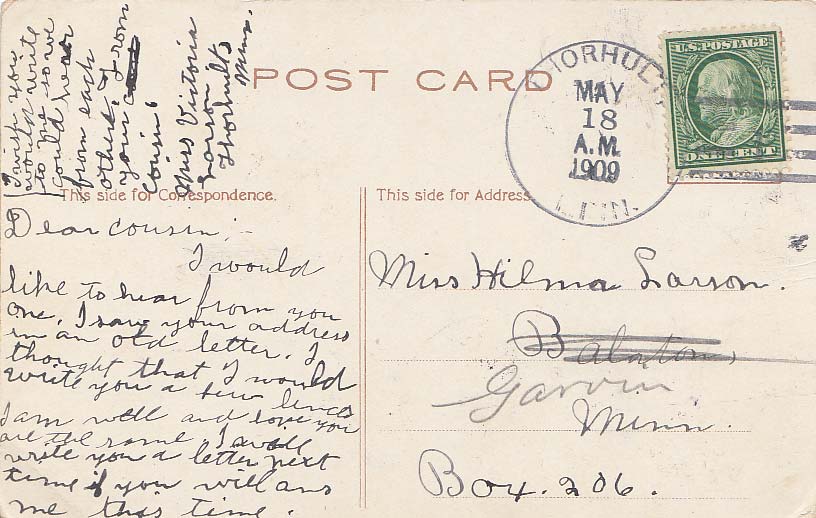 I wish you
would write
to me so we
could hear
from each
other. From
your
cousin.
Miss Victoria
Larson
Thorhult
Minn.
POST CARD
THORHULT
MAY
18
A.M.
1909
MINN.
U.S. POSTAGE
ONE CENT
This side for Correspondence.
This side for Address.
Dear cousin;-
I would
like to hear from you
one. I saw your address
in an old letter. I
thought that I would
write you a few lines
I am well and hope you
are the same I will
write you a letter next
time if you will ans
me this time.
Miss Hilma Larson.
Balaton,
Garvin
Minn.
Box. 206.